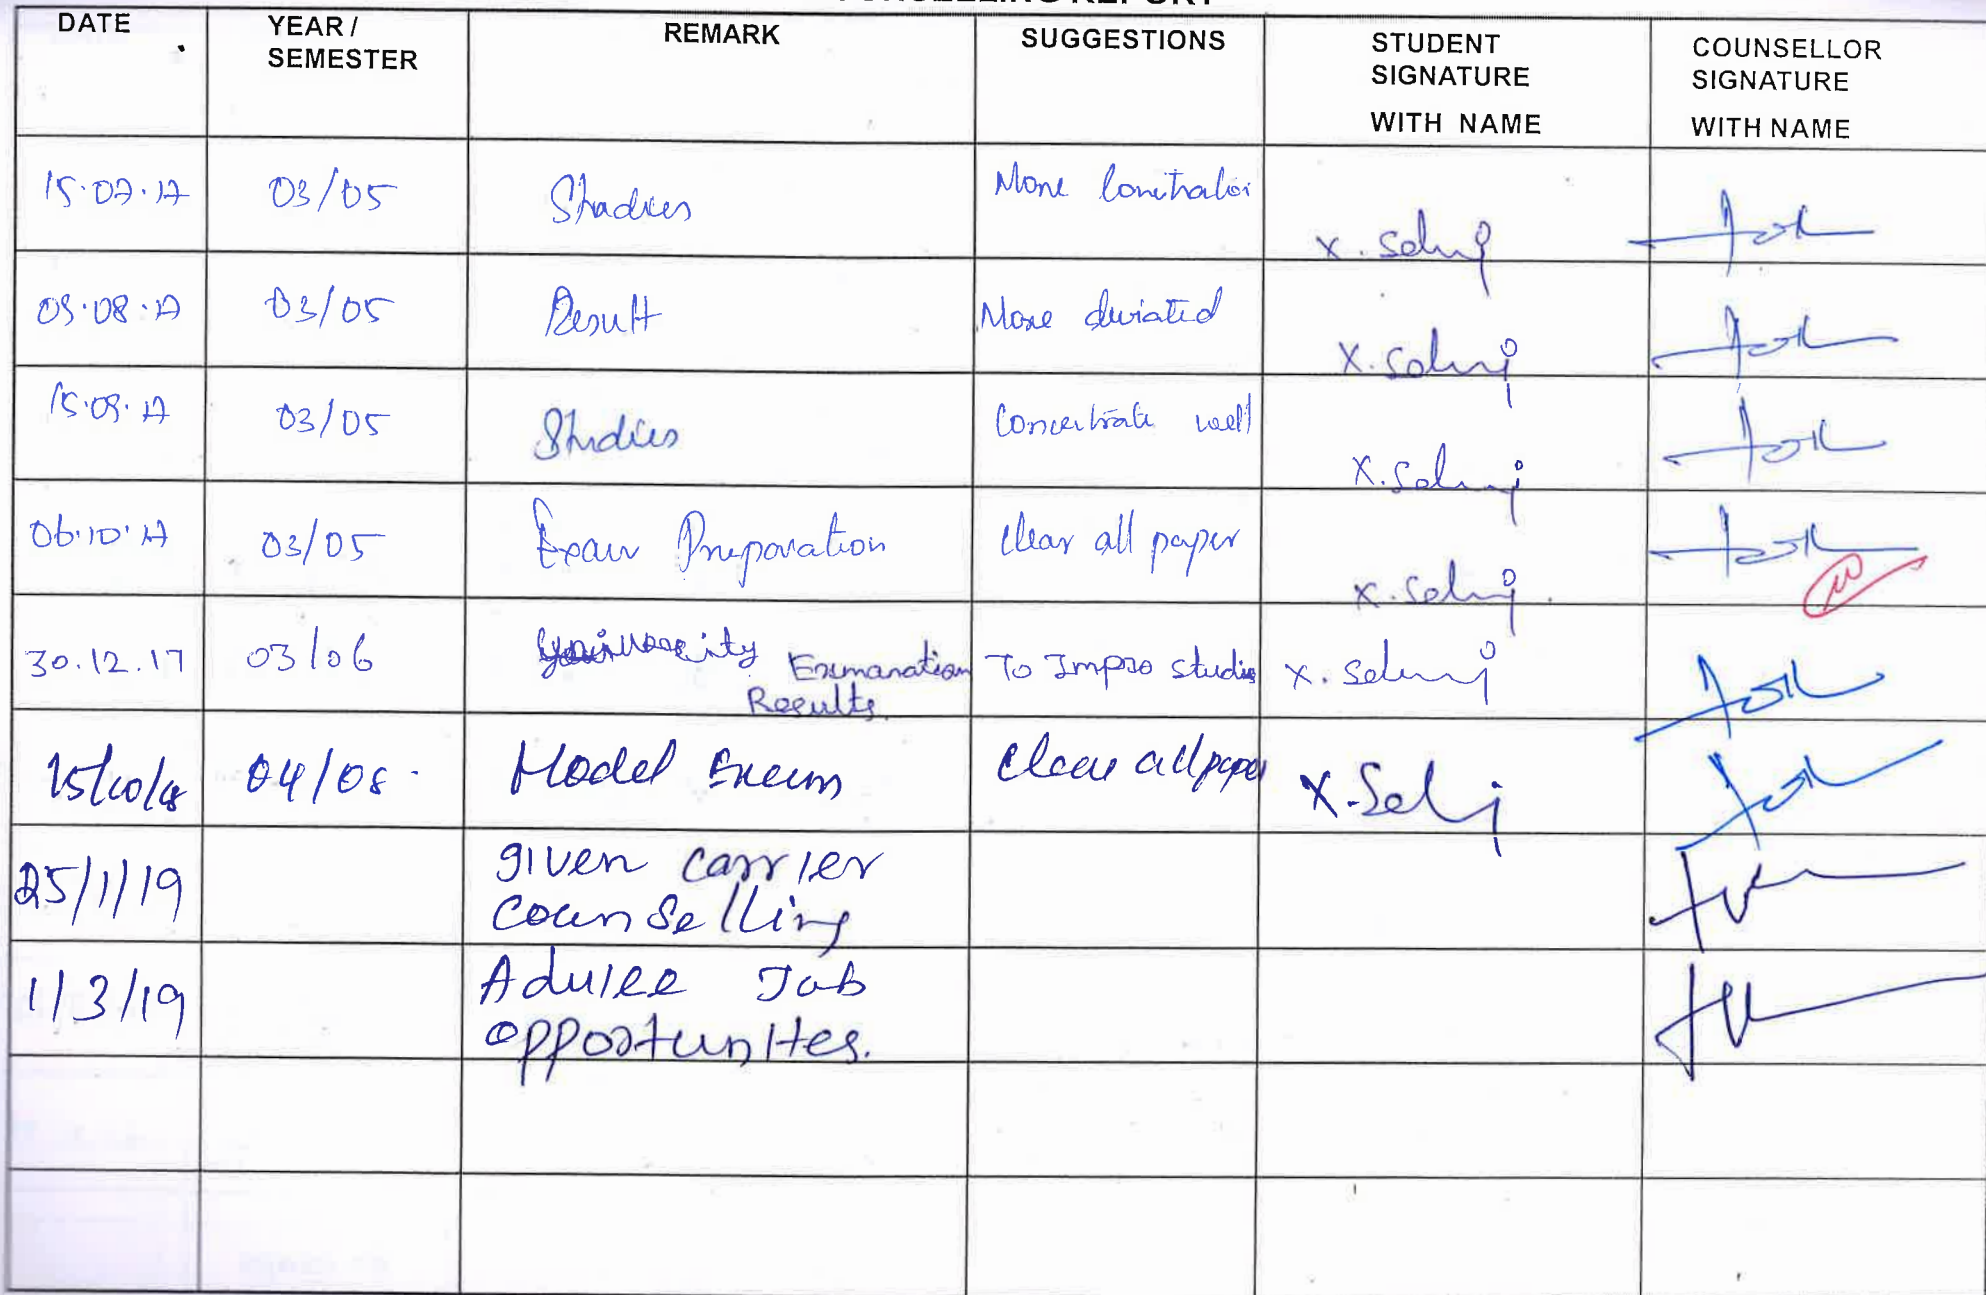 DATE
YEAR /
SEMESTER
REMARK
SUGGESTIONS
STUDENT
SIGNATURE
WITH NAME
COUNSELLOR
SIGNATURE
WITH NAME
15.07.17 03/05 Studies More
X. Selvij
09.08.17 03/05 Result More deviated
X. Selvij
15.09.17 03/05 Studies Concentrate well
X. Selvij
06.10.17 03/05 Exam Preparation Clear all paper
X. Selvij
30.12.17 03/06 Exmanation To Impro studies X. Selvij
Results.
15/10/18 04/08 Model Exam Clear all paper X. Selvij
25/1/19 given carrier
counselling
1/3/19 Advice Job
opportunites.